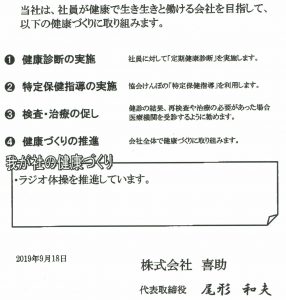 当社は、社員が健康で生き生きと働ける会社を目指して、
以下の健康づくりに取り組みます。
❶ 健康診断の実施 社員に対して「定期健康診断」を実施します。
❷ 特定保健指導の実施 協会けんぽの「特定保健指導」を利用します。
❸ 検査・治療の促し 健診の結果、再検査や治療の必要があった場合
医療機関を受診するように勧めます。
❹ 健康づくりの推進 会社全体で健康づくりに取り組みます。
我が社の健康づくり
・ラジオ体操を推進しています。
2019年9月18日
株式会社 喜助
代表取締役 尾形 和夫